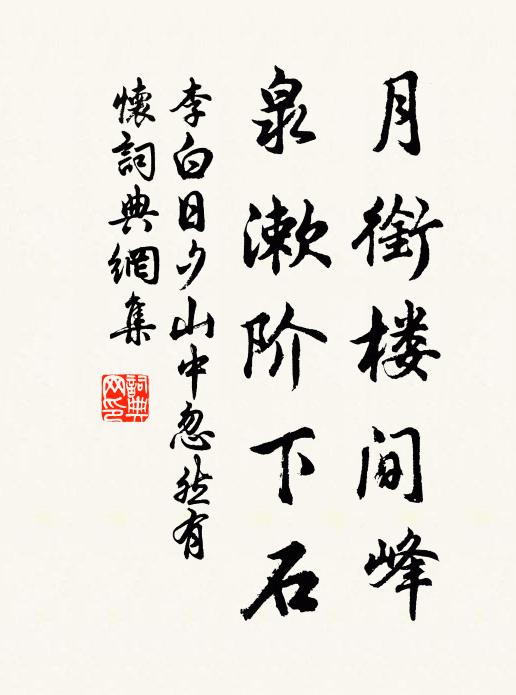 月銜楼间峰
泉漱阶下石
李白日夕山中忽然有
懷詞典網集
詞典网印